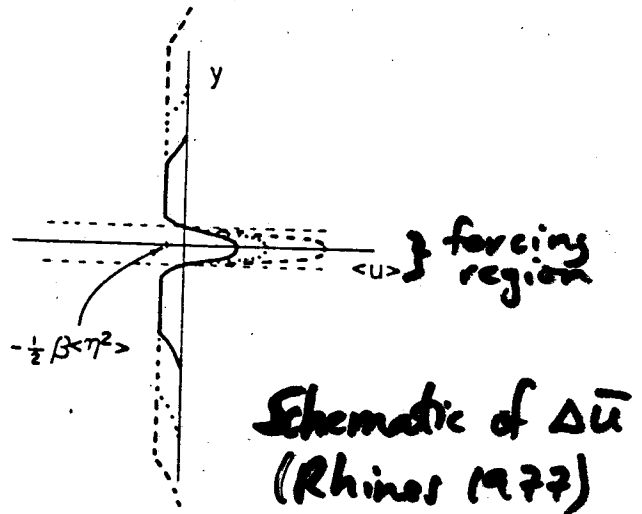 y
} forcing
region
<u>
-½ β<η²>
Schematic of Δū
(Rhines 1977)